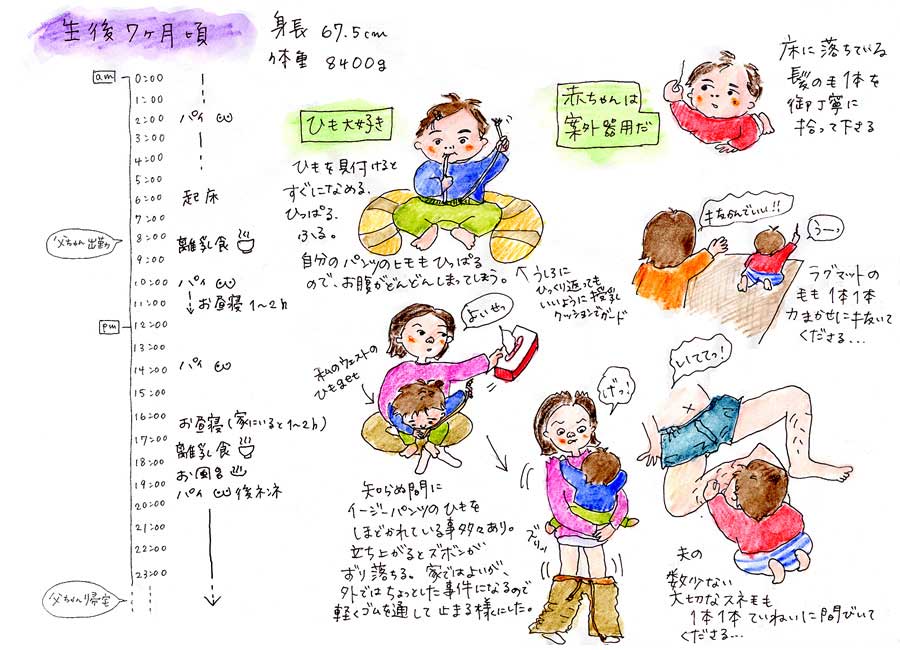 生後7ヶ月頃
身長 67.5cm
体重 8400g
am
0:00
1:00
2:00 パイ
3:00
4:00
5:00
6:00 起床
7:00
8:00 離乳食
父ちゃん出勤
9:00
10:00 パイ
11:00 お昼寝 1〜2h
pm
12:00
13:00
14:00 パイ
15:00
16:00 お昼寝(家にいると1〜2h)
17:00 離乳食
18:00 お風呂
19:00 パイ 後ネンネ
20:00
21:00
22:00
23:00
父ちゃん帰宅
ひも大好き
ひもを見付けると
すぐになめる、
ひっぱる、
ふる。
自分のパンツのヒモもひっぱる
ので、お腹がどんどんしまってしまう。
うしろに
ひっくり返っても
いいように授乳
クッションでガード
私のウェストの
ひもまで
よいせっ
知らぬ間に
イージーパンツのひもを
しほどかれている事多々あり。
立ち上がるとズボンが
ずり落ちる。家ではよいが、
外ではちょっとした事件になるので
軽くゴムを通して止まる様にした。
げっ!
ズリッ
赤ちゃんは
案外器用だ
床に落ちている
髪のも1本を
御丁寧に
拾って下さる
キをかんでいい!!
うーっ
ラグマットの
毛も1本1本
力まかせに抜いて
くださる…
いててっ!
夫の
数少ない
大切なスネ毛も
1本1本ていねいに間びいて
くださる…